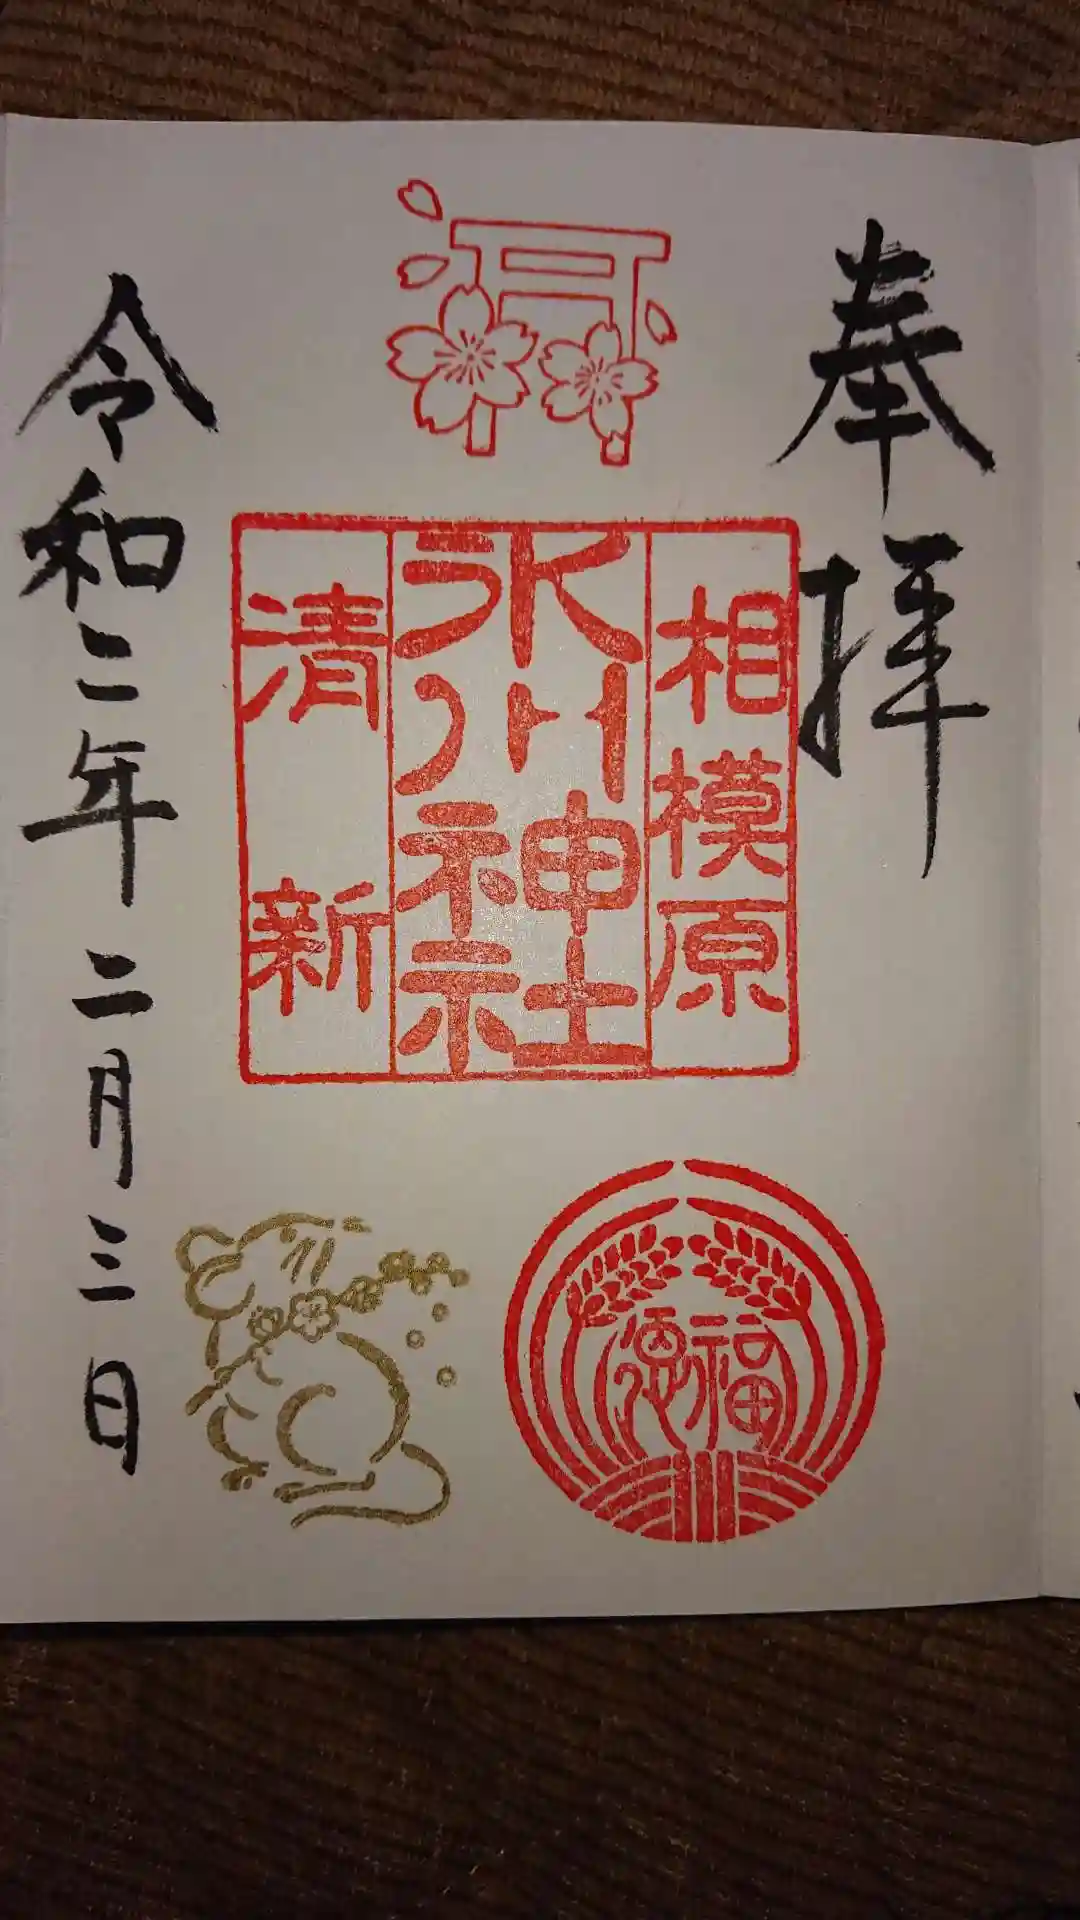 奉拝
相模原
氷川神社
清新
福徳
令和二年二月三日